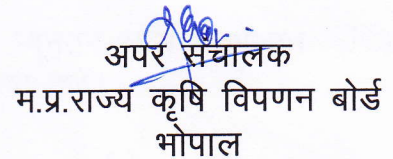 अपर संचालक
म.प्र.राज्य कृषि विपणन बोर्ड
भोपाल